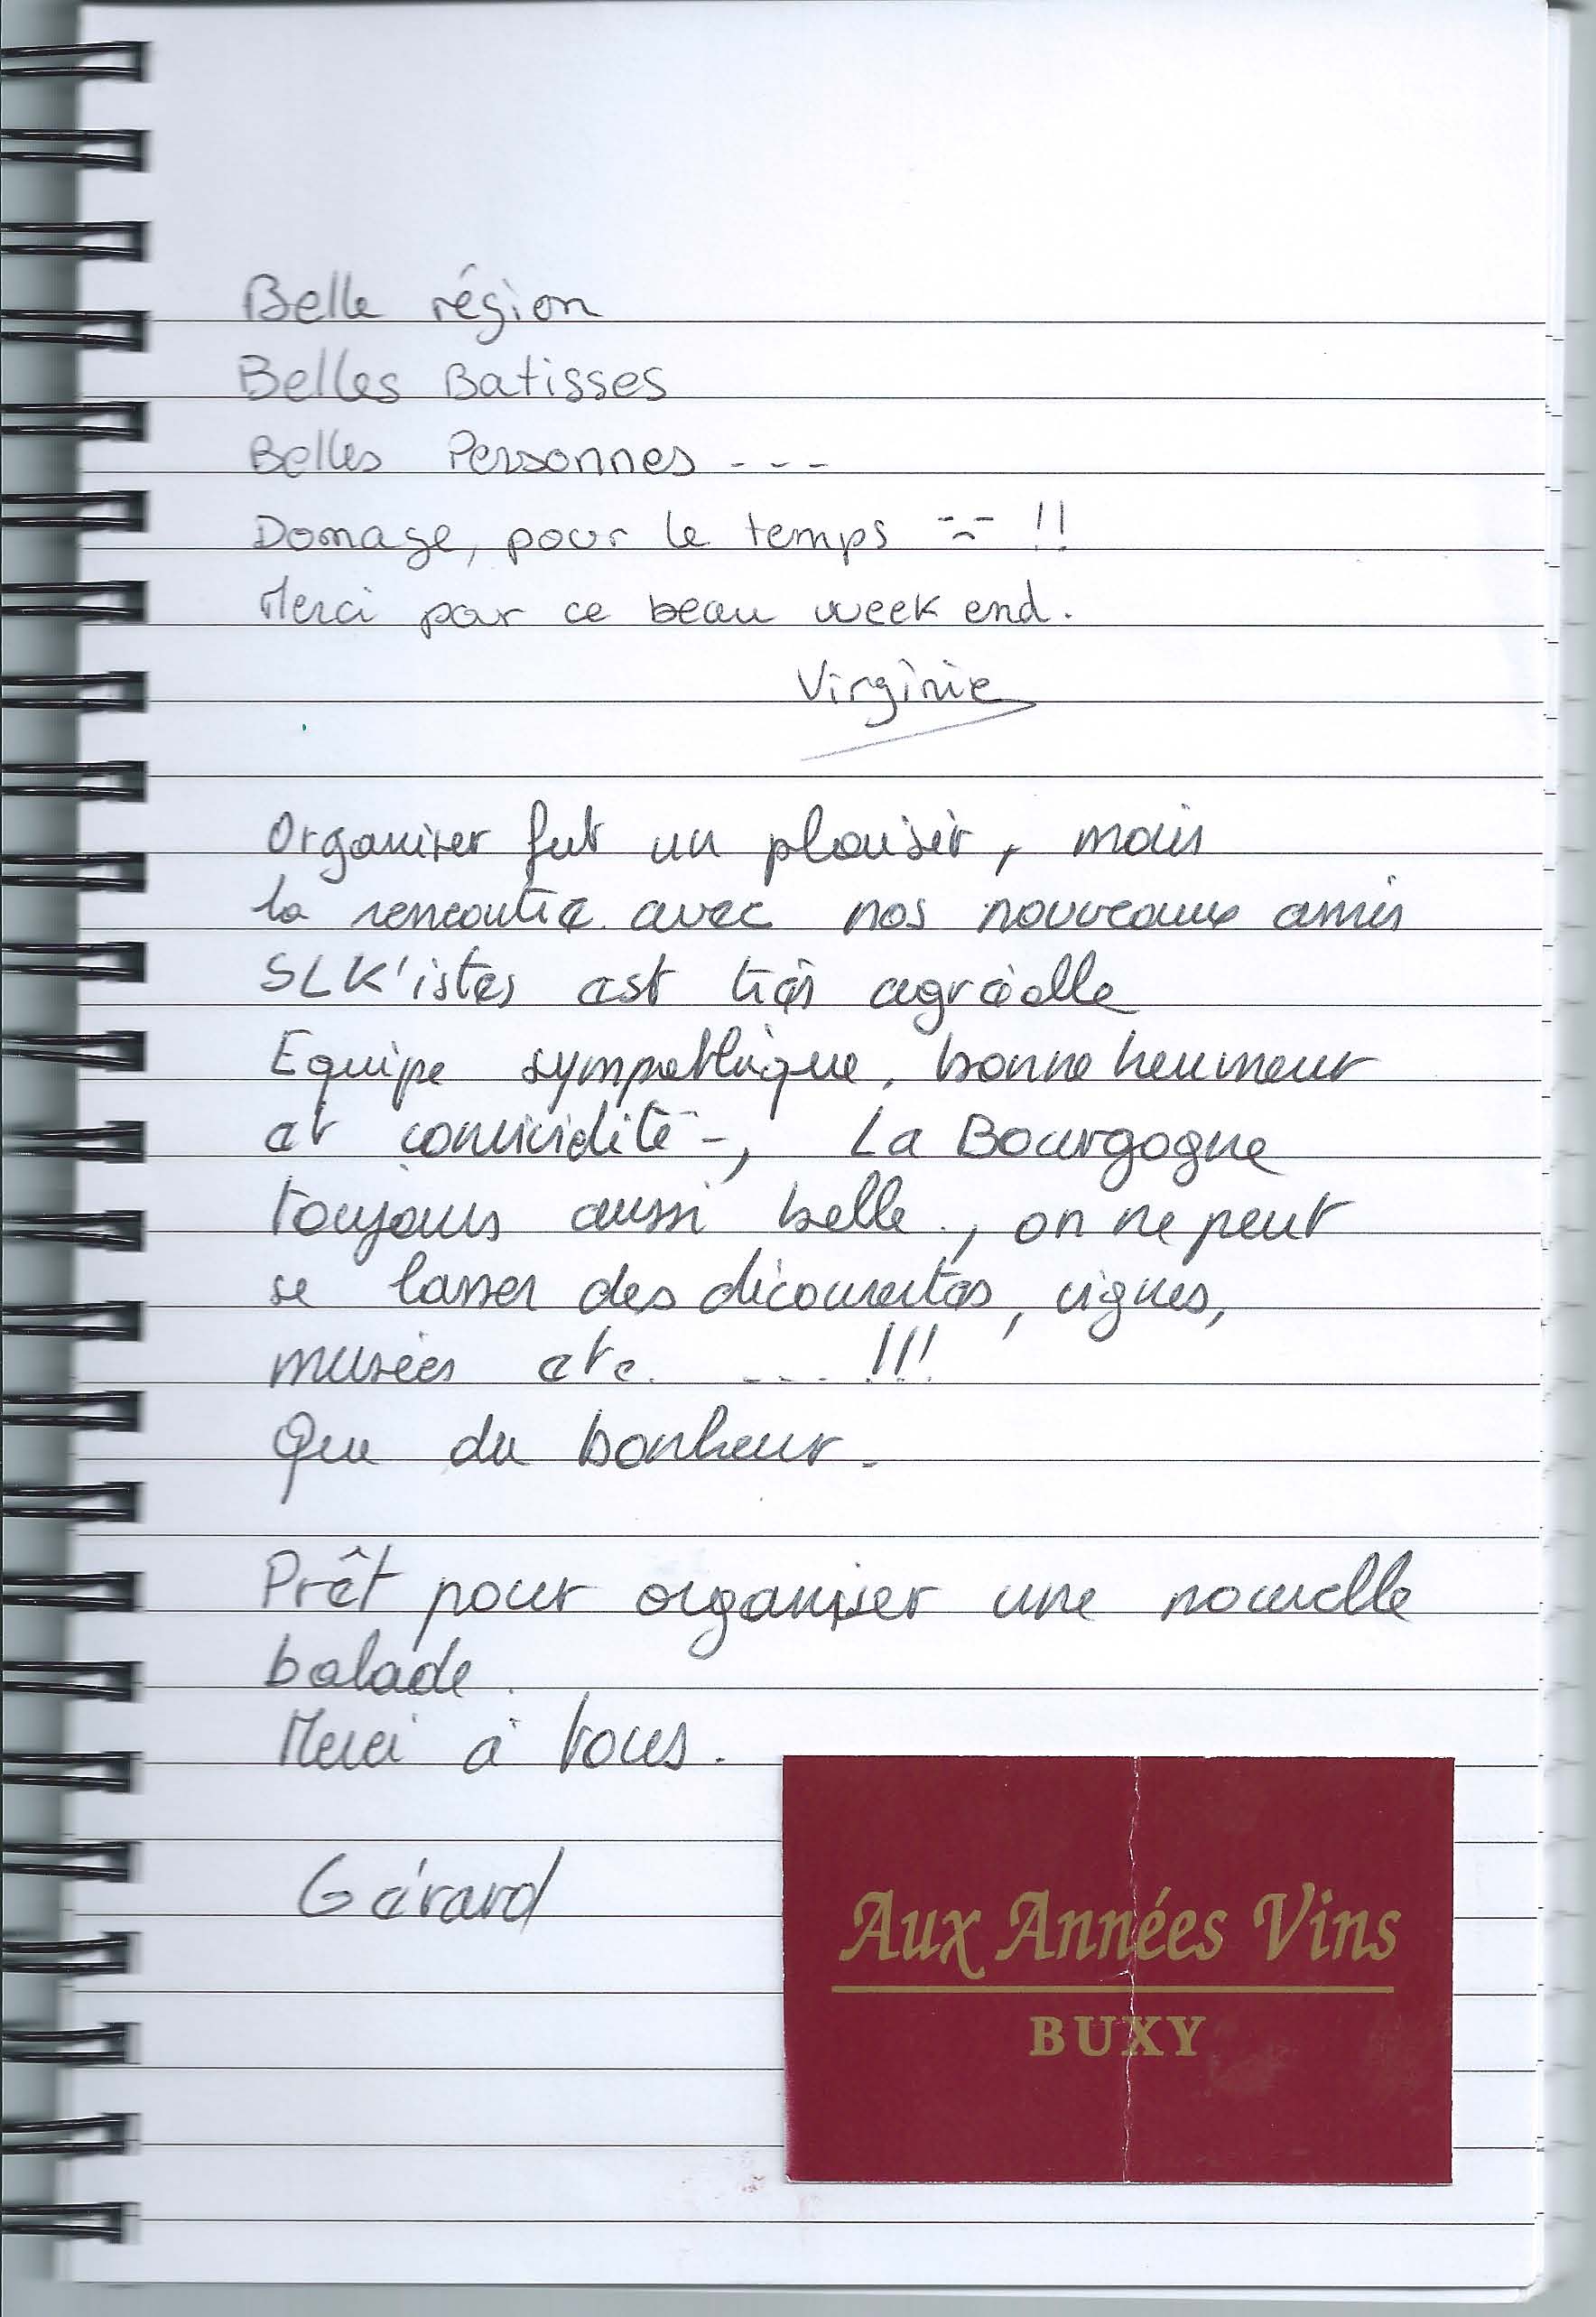 Belle région
Belles Batisses
Belles Personnes ---
Domage, pour le temps !!
Merci pour ce beau week end.
Virginie
Organiser fut un plaisir, mais
la rencontre avec nos nouveaux amis
SLK'istes est très agréable
Equipe sympathique, bonne heumeur
et convividité -, La Bourgogne
toujours aussi belle, on ne peut
se lasser des découvertes, vignes,
musées etc. ... !!!
Que du bonheur.
Prêt pour organiser une nouvelle
balade.
Merci à tous.
Gérard
Aux Années Vins
BUXY